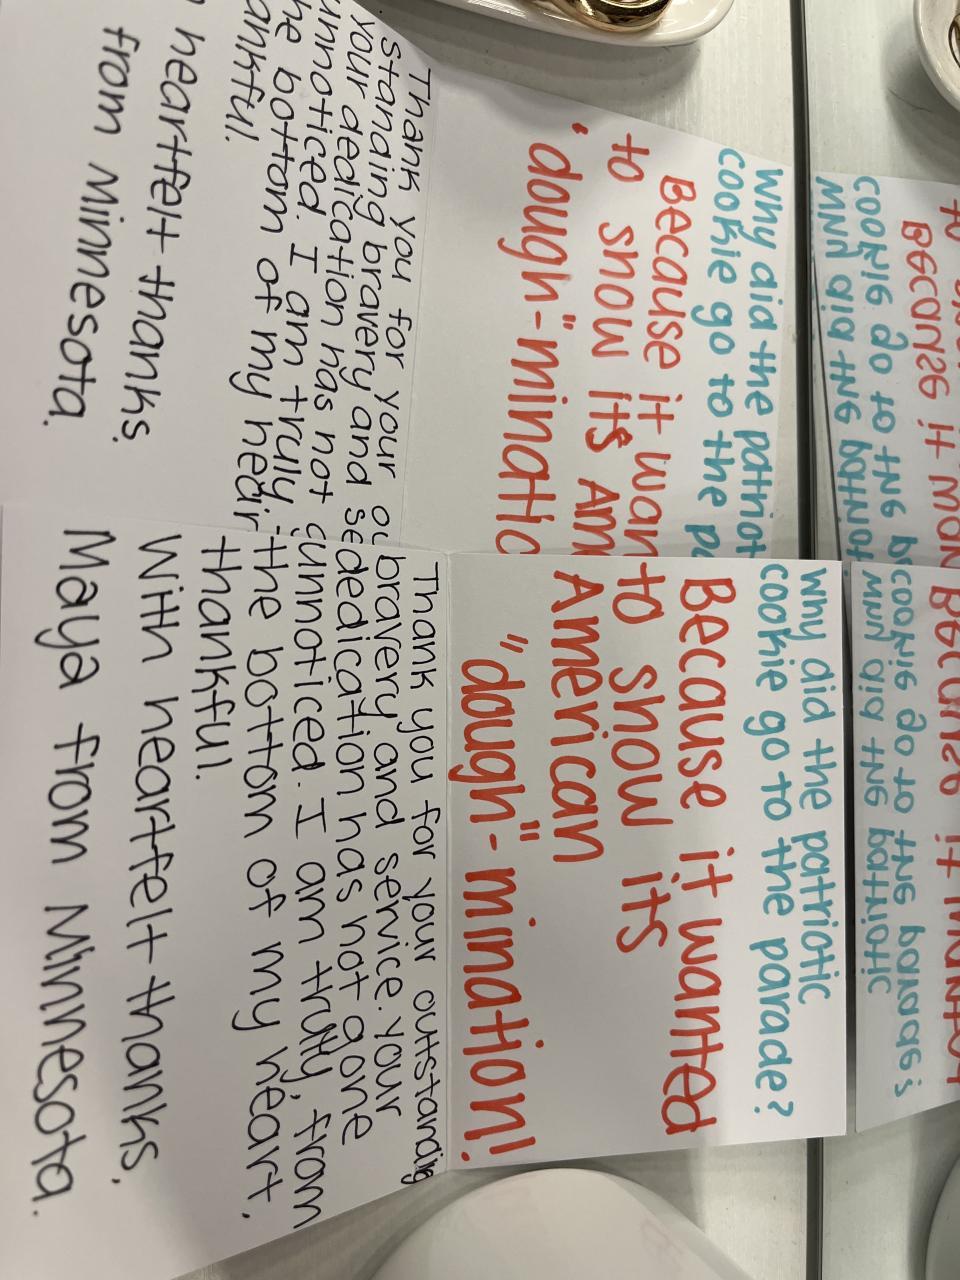 Why did the patriotic
cookie go to the parade?
Because it wanted
to show its
American
"dough"-mination!
Thank you for your outstanding
bravery and service. Your
dedication has not gone
unnoticed. I am truly, from
the bottom of my heart,
thankful.
With heartfelt thanks,
Maya from Minnesota.
Why did the patriot
cookie go to the
Because it wan
to show its Am
"dough"-minatio
Thank you for your
standing bravery and se
your dedication has not
unnoticed. I am truly,
the bottom of my hear
ankful.
heartfelt thanks,
from Minnesota.